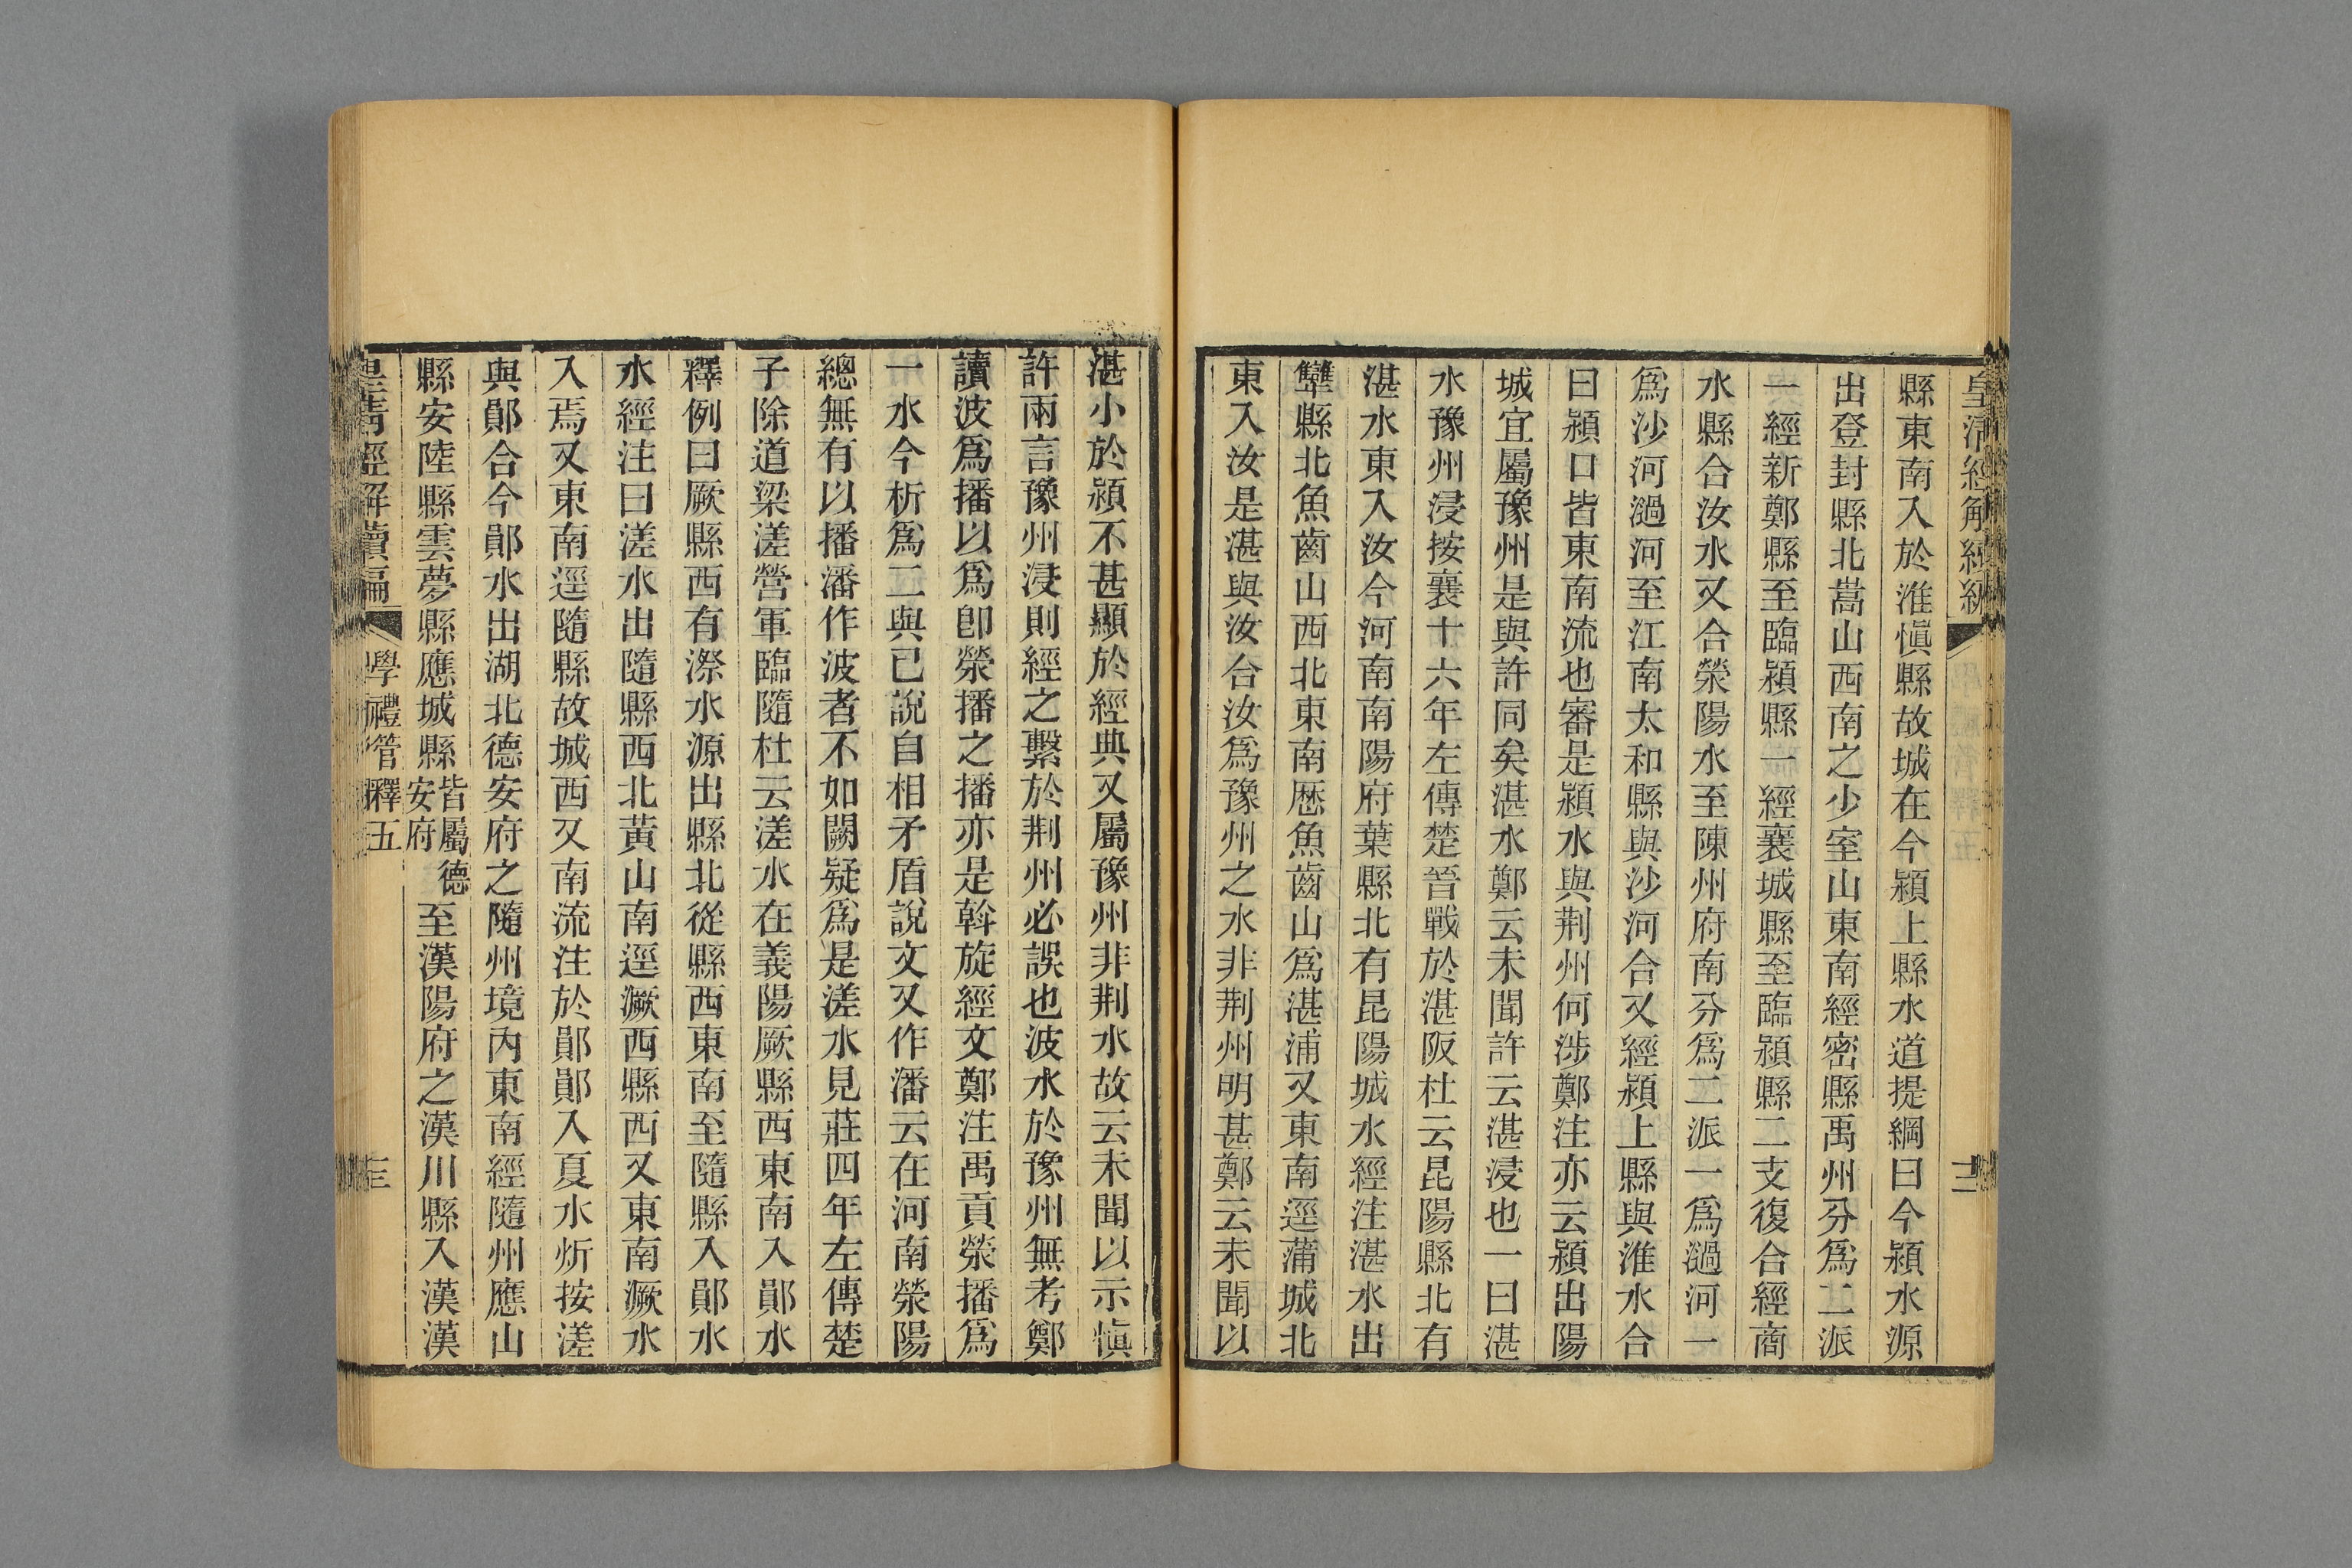 縣東南入於淮愼縣故城在今潁上縣水道提綱曰今潁水源
出登封縣北嵩山西南之少室山東南經密縣禹州分爲二派
一經新鄭縣至臨潁縣一經襄城縣至臨潁縣二支復合經商
水縣合汝水又合滎陽水至陳州府南分爲二派一爲濄河一
爲沙河濄河至江南太和縣與沙河合又經潁上縣與淮水合
曰潁口皆東南流也審是潁水與荆州何涉鄭注亦云潁出陽
城宜屬豫州是與許同矣湛水鄭云未聞許云湛浸也一曰湛
水豫州浸按襄十六年左傳楚晉戰於湛阪杜云昆陽縣北有
湛水東入汝今河南南陽府葉縣北有昆陽城水經注湛水出
犨縣北魚齒山西北東南歷魚齒山爲湛浦又東南逕蒲城北
東入汝是湛與汝合汝爲豫州之水非荆州明甚鄭云未聞以
湛小於潁不甚顯於經典又屬豫州非荆水故云未聞以示愼
許兩言豫州浸則經之繫於荆州必誤也波水於豫州無考鄭
讀波爲播以爲卽滎播之播亦是斡旋經文鄭注禹貢滎播爲
一水今析爲二與已說自相矛盾說文又作潘云在河南滎陽
總無有以播潘作波者不如闕疑爲是溠水見莊四年左傳楚
子除道梁溠營軍臨隨杜云溠水在義陽厥縣西東南入鄖水
釋例曰厥縣西有漈水源出縣北從縣西東南至隨縣入鄖水
水經注曰溠水出隨縣西北黃山南逕㵐西縣西又東南㵐水
入焉又東南逕隨縣故城西又南流注於鄖鄖入夏水炘按溠
與鄖合今鄖水出湖北德安府之隨州境內東南經隨州應山
縣安陸縣雲夢縣應城縣皆屬德安府至漢陽府之漢川縣入漢漢
皇淸經解續編 學禮管釋五